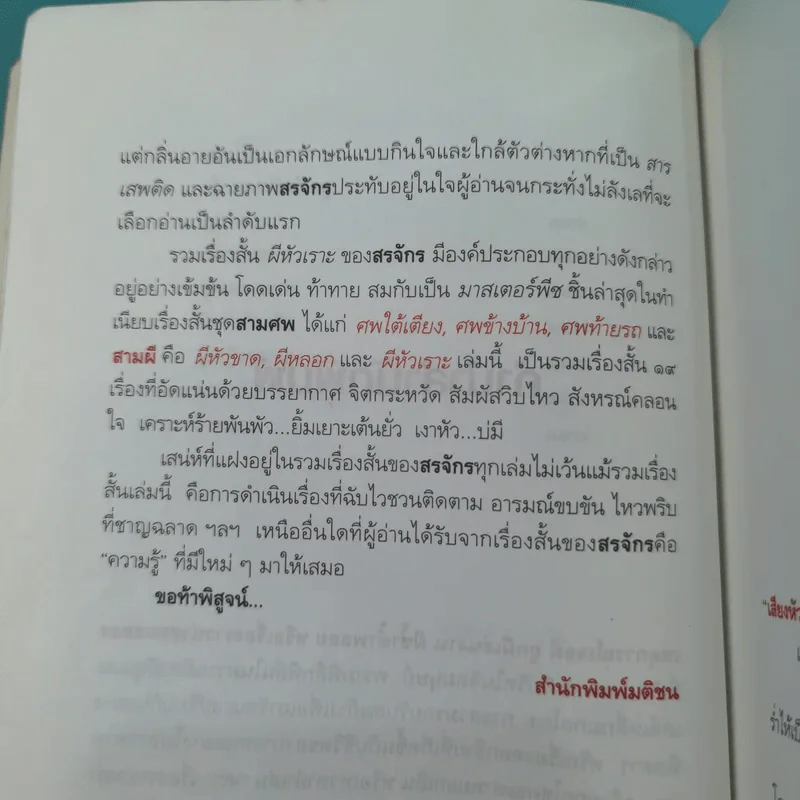 แต่กลิ่นอายอันเป็นเอกลักษณ์แบบกินใจและใกล้ตัวต่างหากที่เป็น สาร
เสพติด และฉายภาพสรจักรประทับอยู่ในใจผู้อ่านจนกระทั่งไม่ลังเลที่จะ
เลือกอ่านเป็นลำดับแรก
รวมเรื่องสั้น ผีหัวเราะ ของสรจักร มีองค์ประกอบทุกอย่างดังกล่าว
อยู่อย่างเข้มข้น โดดเด่น ท้าทาย สมกับเป็น มาสเตอร์พีซ ชิ้นล่าสุดในทำ
เนียบเรื่องสั้นชุดสามศพ ได้แก่ ศพใต้เตียง, ศพข้างบ้าน, ศพท้ายรถ และ
สามผี คือ ผีหัวขาด, ผีหลอก และ ผีหัวเราะ เล่มนี้ เป็นรวมเรื่องสั้น ๑๙
เรื่องที่อัดแน่นด้วยบรรยากาศ จิตกระหวัด สัมผัสวิบไหว สังหรณ์คลอน
ใจ เคราะห์ร้ายพันพัว...ยิ้มเยาะเต้นยั่ว เงาหัว...บ่มี
เสน่ห์ที่แฝงอยู่ในรวมเรื่องสั้นของสรจักรทุกเล่มไม่เว้นแม้รวมเรื่อง
สั้นเล่มนี้ คือการดำเนินเรื่องที่ฉับไวชวนติดตาม อารมณ์ขบขัน ไหวพริบ
ที่ชาญฉลาด ฯลฯ เหนืออื่นใดที่ผู้อ่านได้รับจากเรื่องสั้นของสรจักรคือ
"ความรู้" ที่มีใหม่ ๆ มาให้เสมอ
ขอท้าพิสูจน์...
สำนักพิมพ์มติชน
"เสียงหัว
ร่ำให้เป็